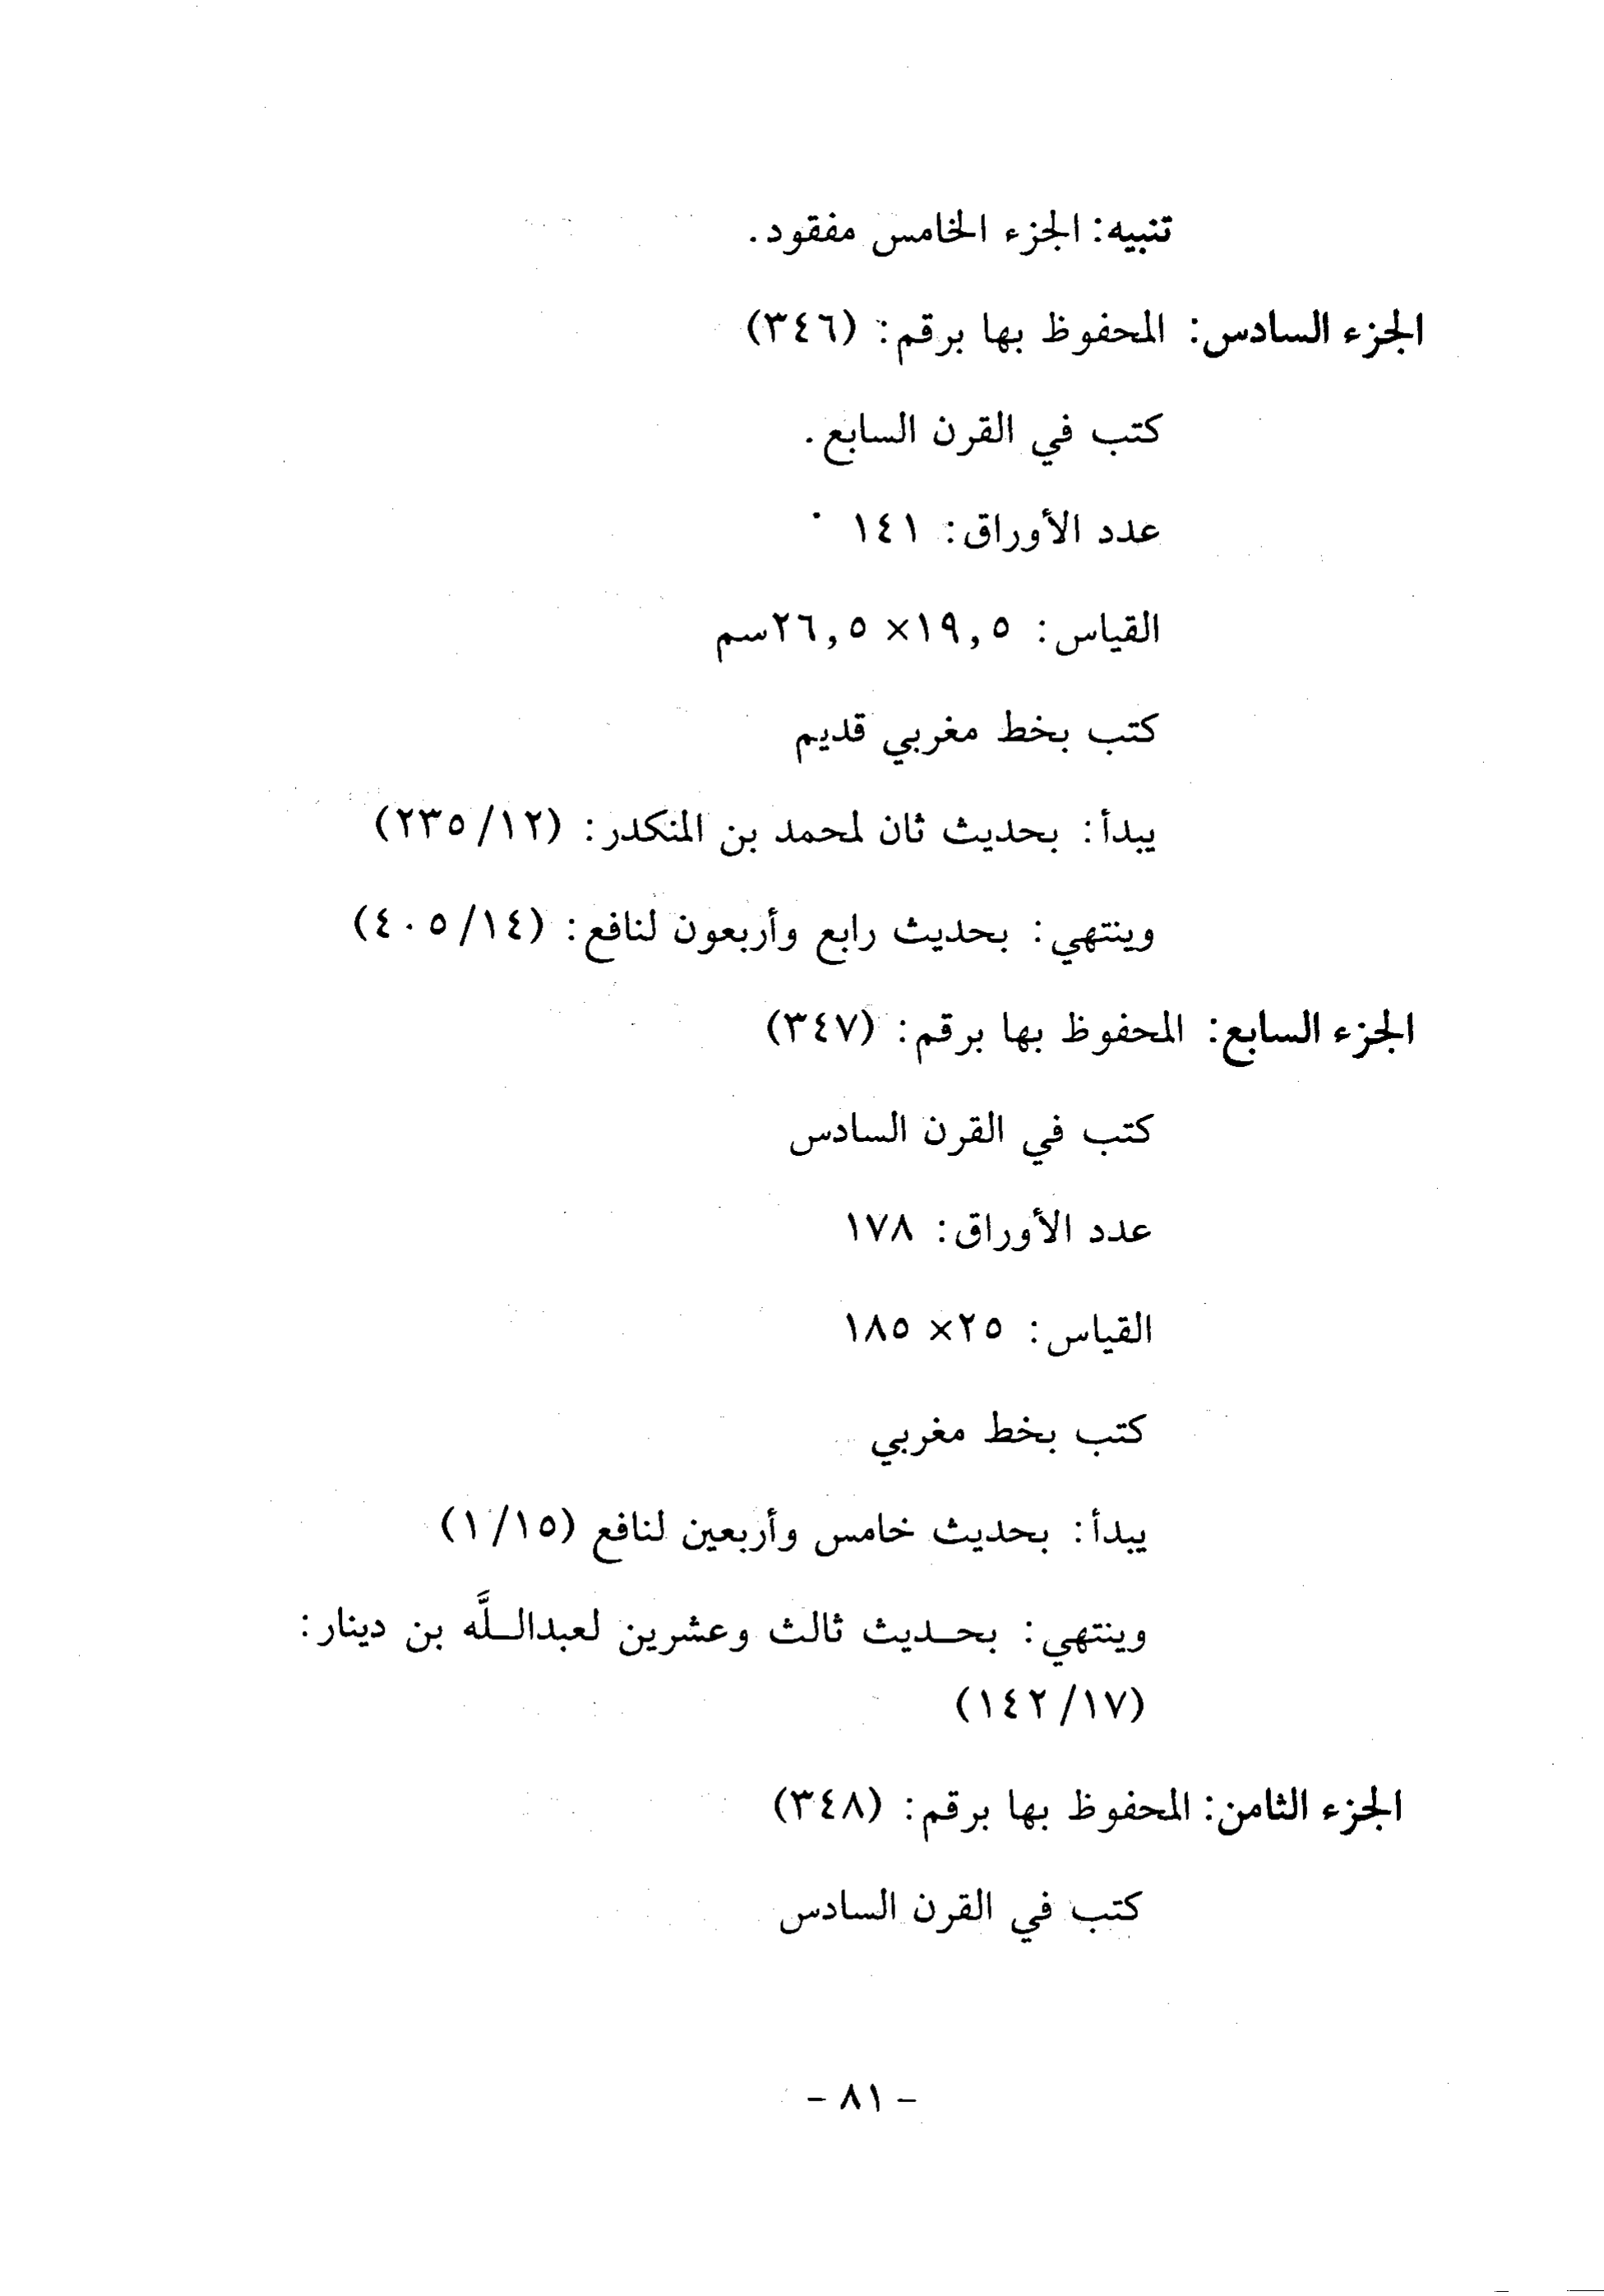 تنبيه: الجزء الخامس مفقود.
الجزء السادس: المحفوظ بها برقم: (٣٤٦)
كتب في القرن السابع.
عدد الأوراق: ١٤١
القياس: ١٩,٥× ٢٦,٥سم
كتب بخط مغربي قديم
يبدأ: بحديث ثان لمحمد بن المنكدر: (١٢/ ٢٣٥)
وينتهي: بحديث رابع وأربعون لنافع: (١٤/ ٤٠٥)
الجزء السابع: المحفوظ بها برقم: (٣٤٧)
كتب في القرن السادس
عدد الأوراق: ١٧٨
القياس: ٢٥× ١٨٥
كتب بخط مغربي
يبدأ: بحديث خامس وأربعين لنافع (١٥/ ١)
وينتهي: بحـديث ثالث وعشرين لعبدالـلَّه بن دينار:
(١٧/ ١٤٢)
الجزء الثامن: المحفوظ بها برقم: (٣٤٨)
كتب في القرن السادس
- ٨١ -